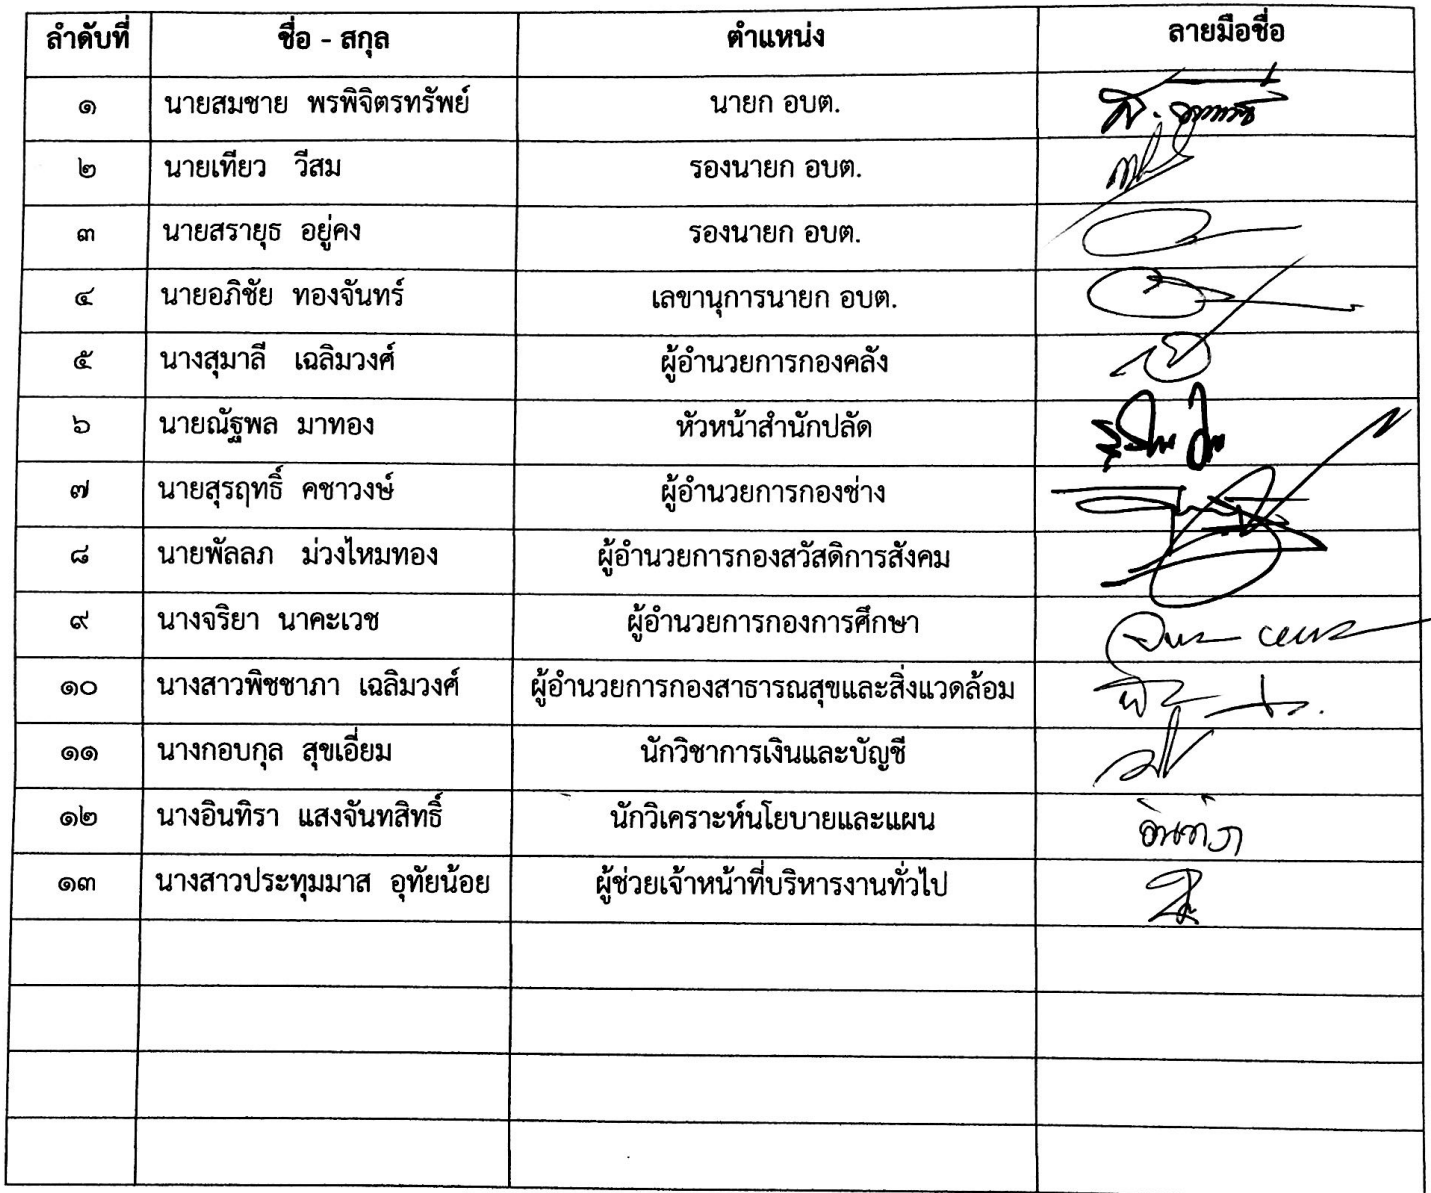 ลำดับที่ ชื่อ - สกุล ตำแหน่ง ลายมือชื่อ
๑ นายสมชาย พรพิจิตรทรัพย์ นายก อบต.
๒ นายเทียว วีสม รองนายก อบต.
๓ นายสรายุธ อยู่คง รองนายก อบต.
๔ นายอภิชัย ทองจันทร์ เลขานุการนายก อบต.
๕ นางสุมาลี เฉลิมวงศ์ ผู้อำนวยการกองคลัง
๖ นายณัฐพล มาทอง หัวหน้าสำนักปลัด
๗ นายสุรฤทธิ์ คชาวงษ์ ผู้อำนวยการกองช่าง
๘ นายพัลลภ ม่วงไหมทอง ผู้อำนวยการกองสวัสดิการสังคม
๙ นางจริยา นาคะเวช ผู้อำนวยการกองการศึกษา
๑๐ นางสาวพิชชาภา เฉลิมวงศ์ ผู้อำนวยการกองสาธารณสุขและสิ่งแวดล้อม
๑๑ นางกอบกุล สุขเอี่ยม นักวิชาการเงินและบัญชี
๑๒ นางอินทิรา แสงจันทสิทธิ์ นักวิเคราะห์นโยบายและแผน อินทิรา
๑๓ นางสาวประทุมมาส อุทัยน้อย ผู้ช่วยเจ้าหน้าที่บริหารงานทั่วไป